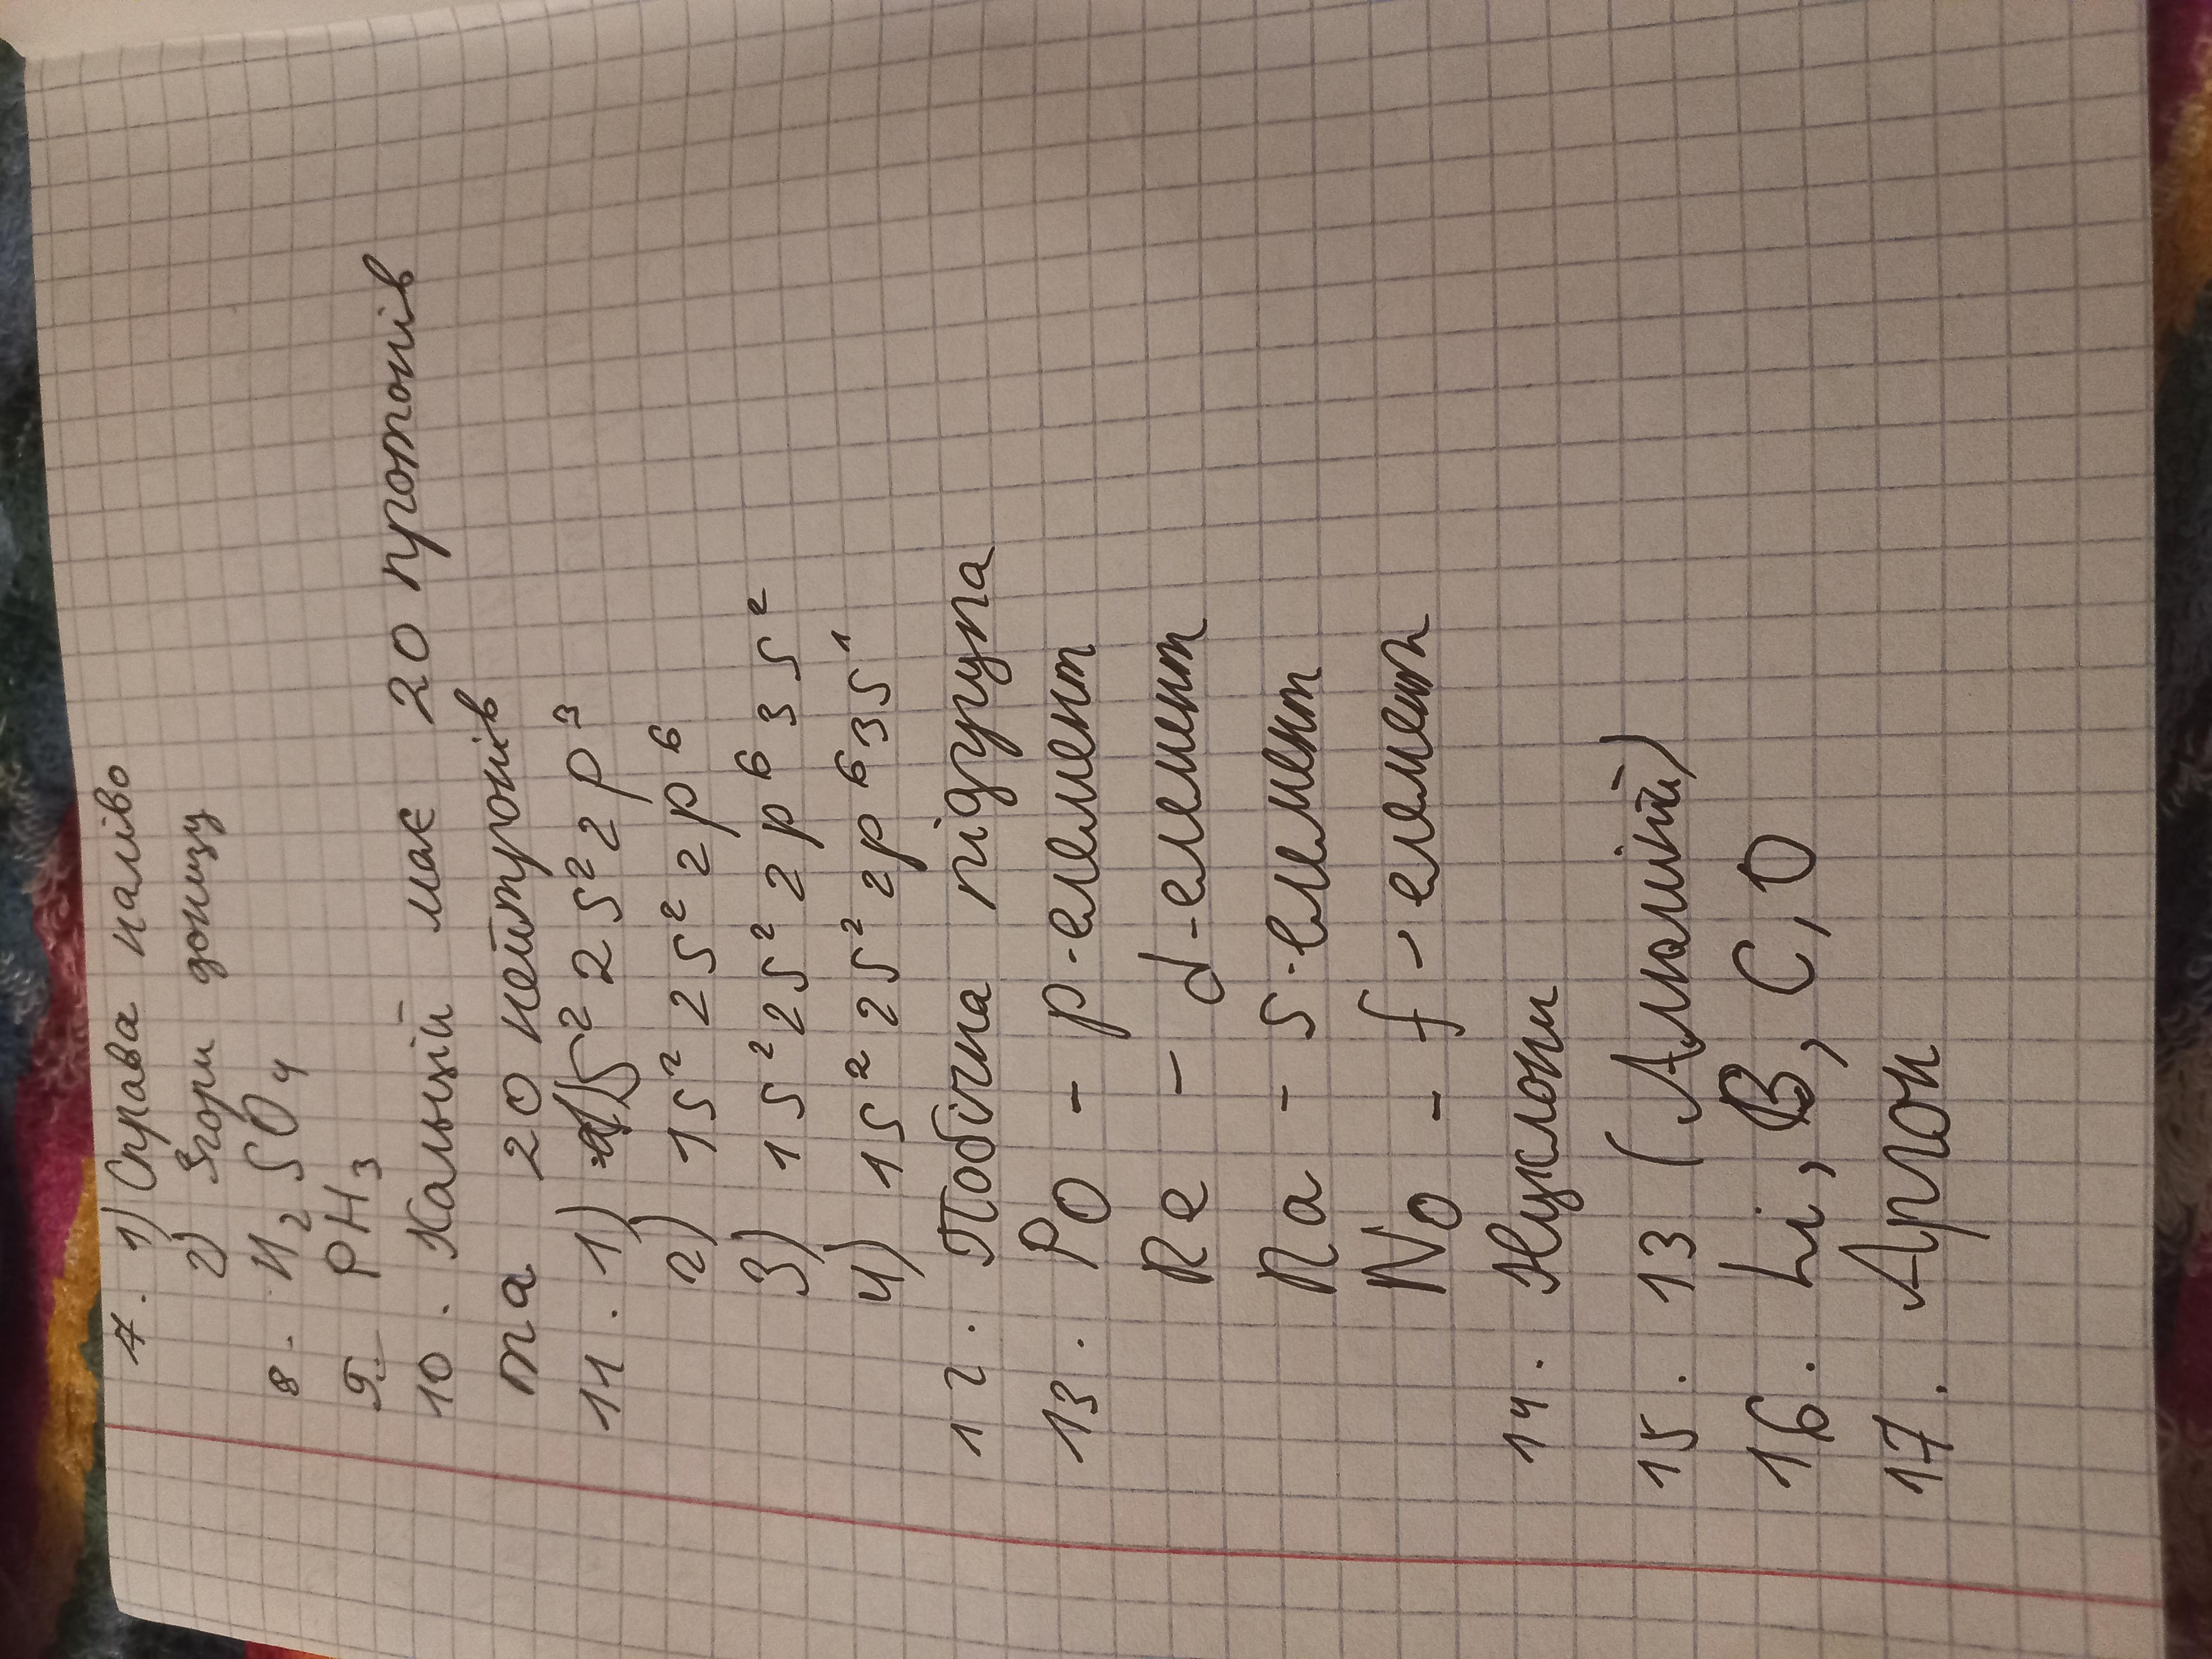 7. 1) Справа наліво
2) Згори донизу
8. H₂SO₄
9. PH₃
10. Кальцій має 20 протонів
та 20 нейтронів
11. 1) 1s² 2s² 2p³
2) 1s² 2s² 2p⁶
3) 1s² 2s² 2p⁶ 3s²
4) 1s² 2s² 2p⁶ 3s¹
12. Побічна підгрупа
13. Po - p-елемент
Re - d-елемент
Na - s-елемент
No - f-елемент
14. Нуклони
15. 13 (Алюміній)
16. Li, B, C, O
17. Аргон